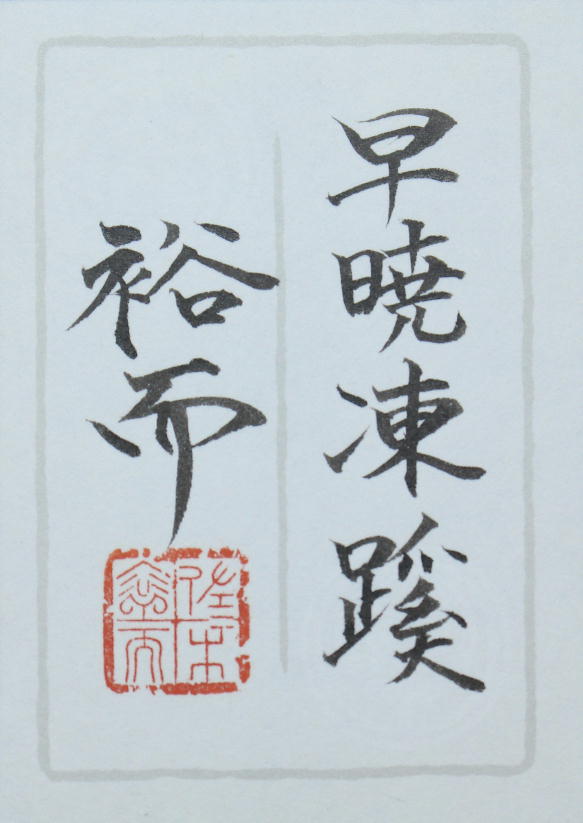 早暁凍蹊
裕而